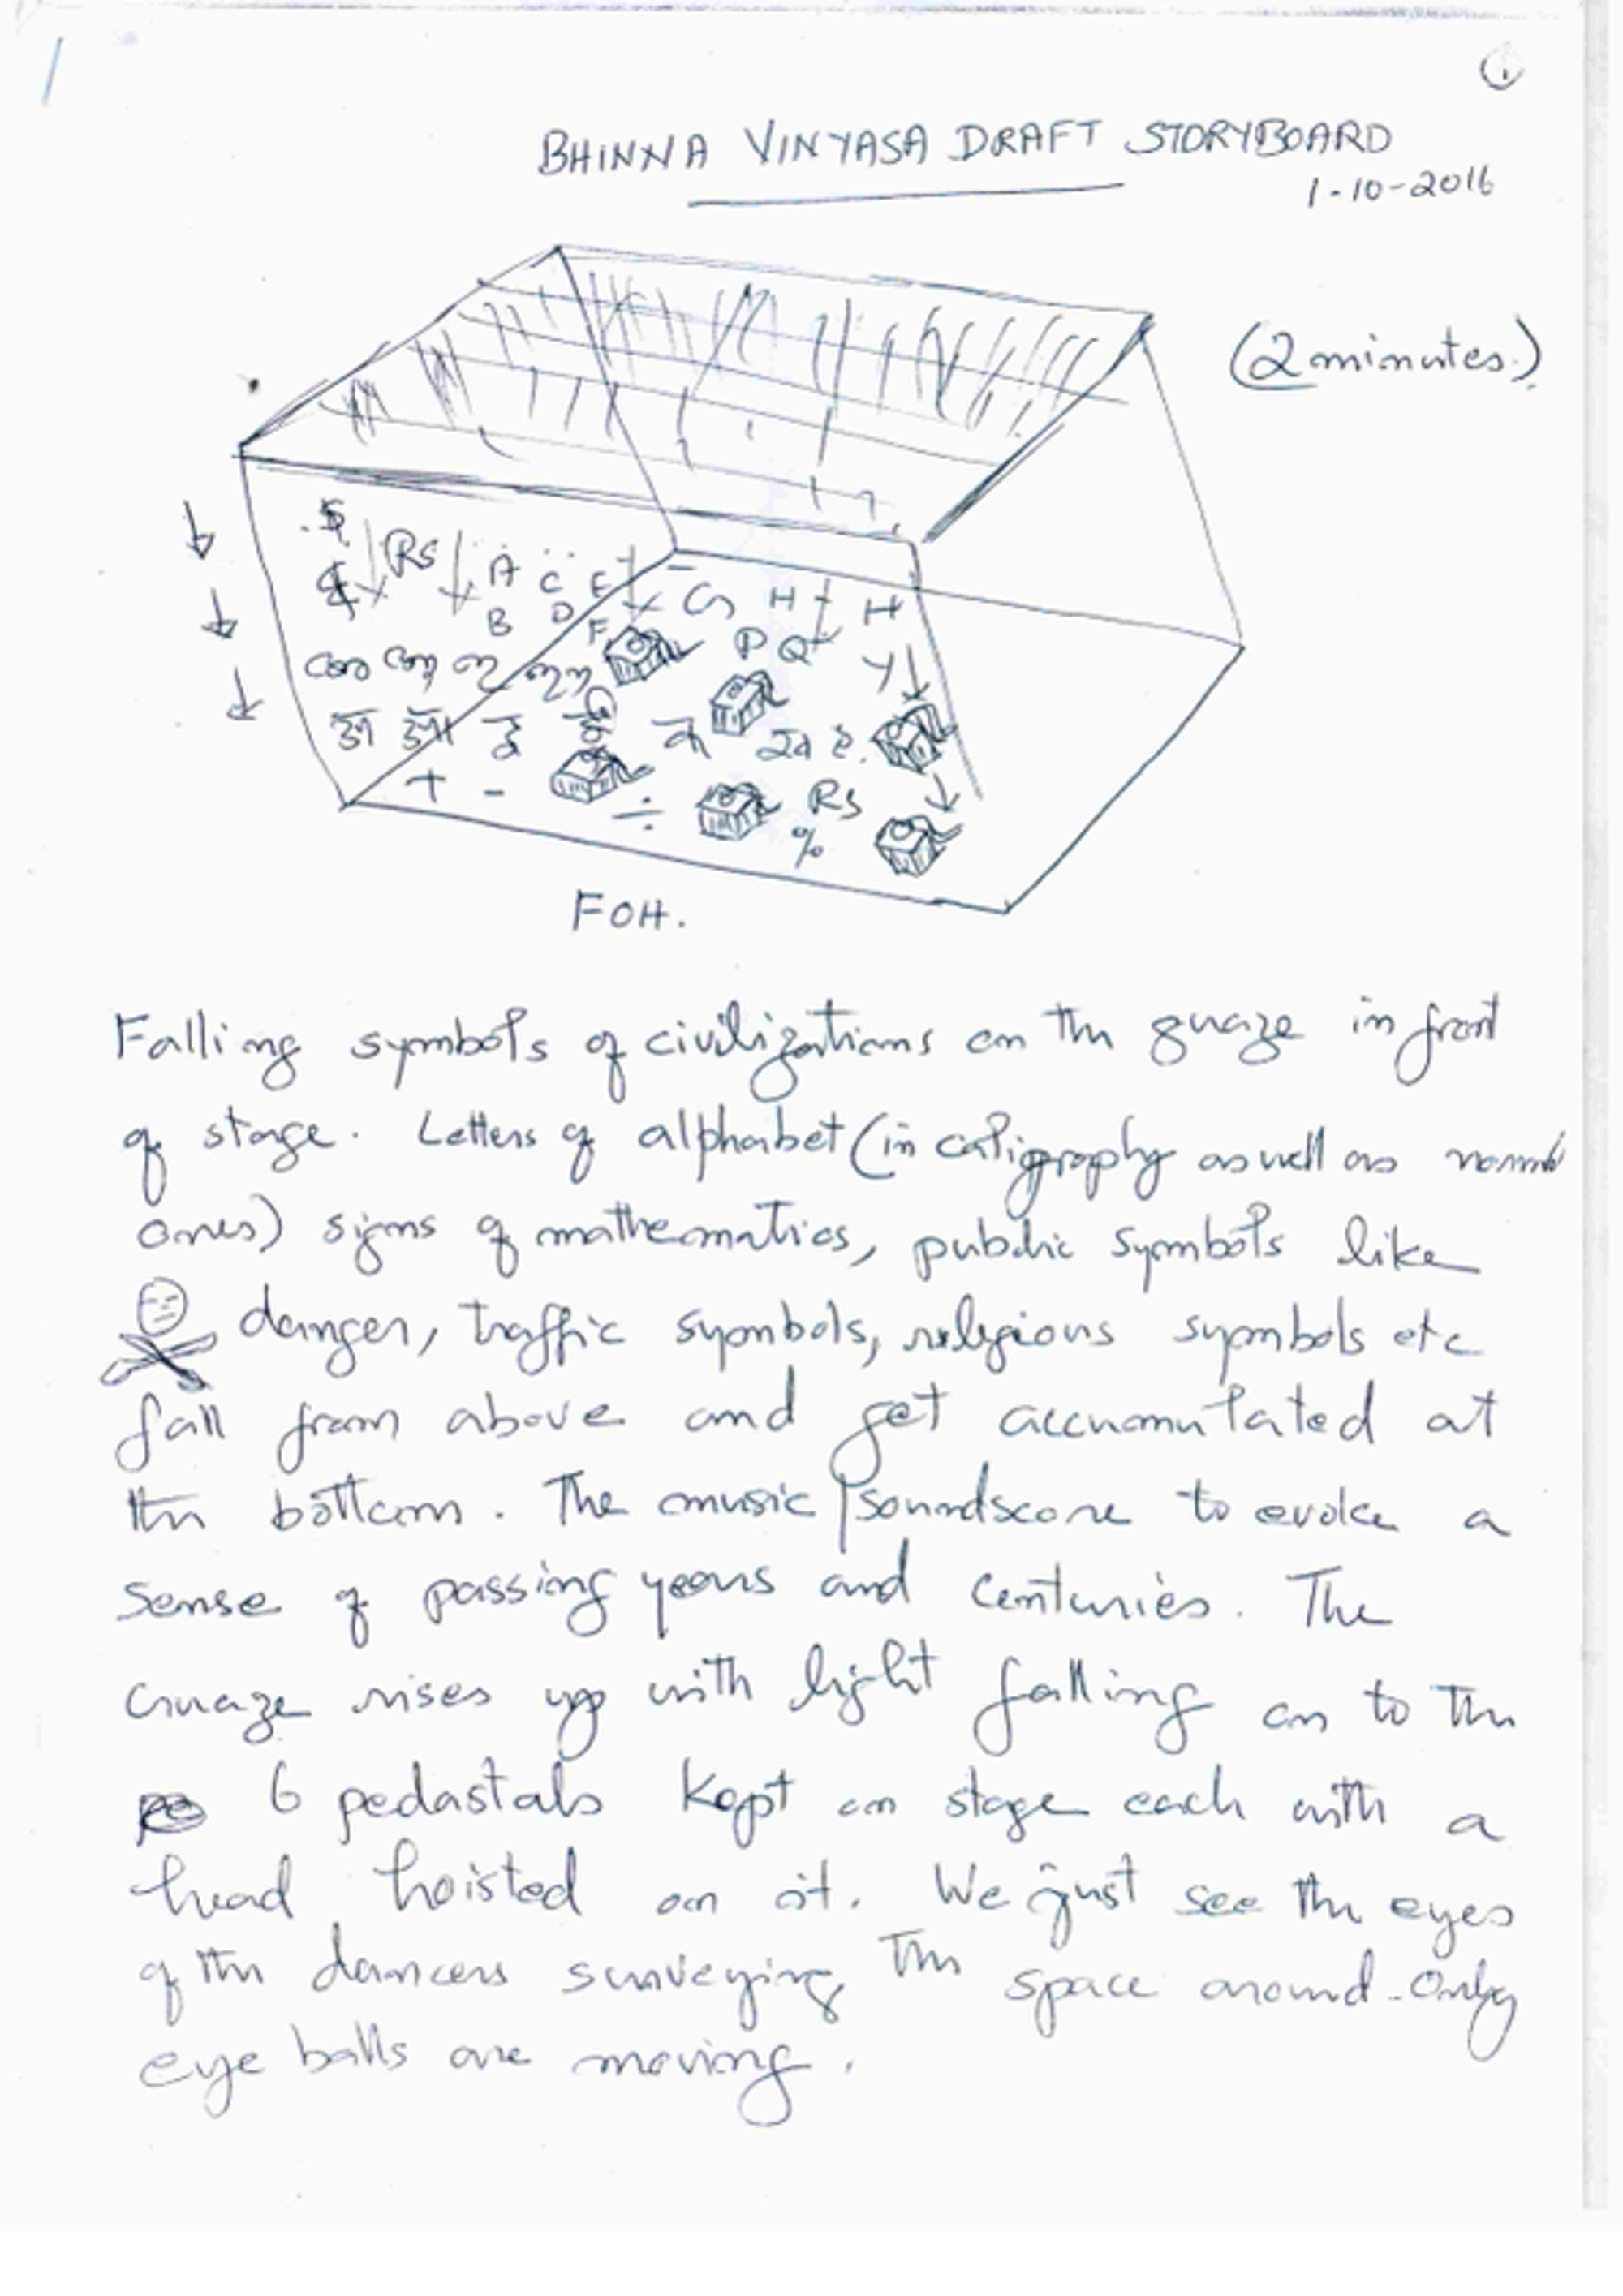 1
BHINNA VINYASA DRAFT STORYBOARD
1-10-2016
(2 minutes.)
$ Rs A C E G H H
B D F P Q Y
अ आ इ ई क
+ - ÷ % Rs
FOH.
Falling symbols of civilizations on the guaze in front
of stage. Letters of alphabet (in caligraphy as well as normal
ones) signs of mathematics, public symbols like
danger, traffic symbols, religious symbols etc
fall from above and get accumulated at
the bottom. The music/soundscore to evoke a
sense of passing years and centuries. The
Guaze rises up with light falling on to the
6 pedastals kept on stage each with a
head hoisted on it. We just see the eyes
of the dancers surveying the space around. Only
eye balls are moving.